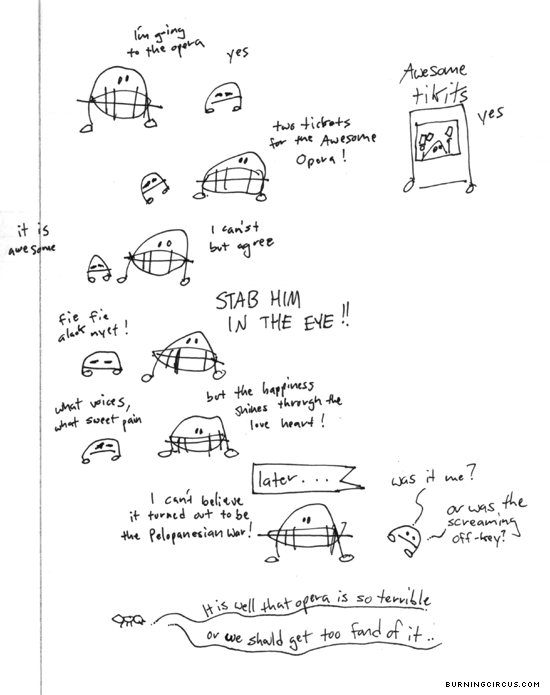 I'm going
to the opera
yes
Awesome
tikits
yes
two tickets
for the Awesome
Opera!
it is
awesome
I can't
but agree
STAB HIM
IN THE EYE!!
fie fie
alack nyet!
what voices,
what sweet pain
but the happiness
shines through the
love heart!
later...
I can't believe
it turned out to be
the Pelopanesian War!
was it me?
or was the
screaming
off-key?
It is well that opera is so terrible
or we should get too fond of it..
BURNINGCIRCUS.COM